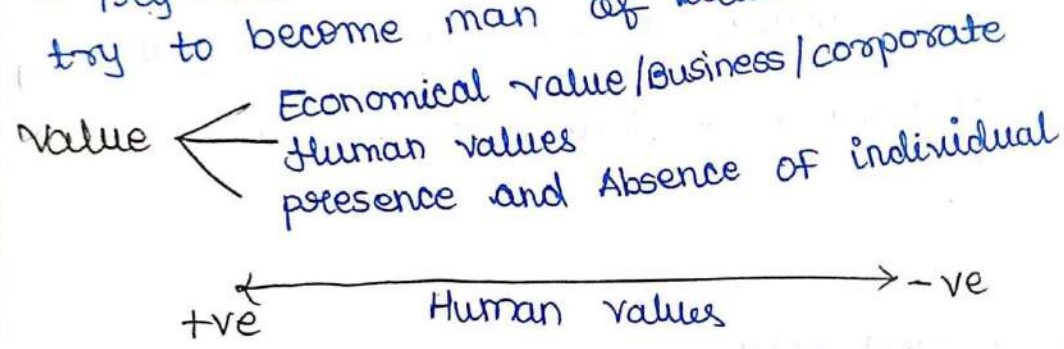 try to become man of
Economical value/Business/corporate
Value Human values
presence and Absence of individual
+ve Human values -ve